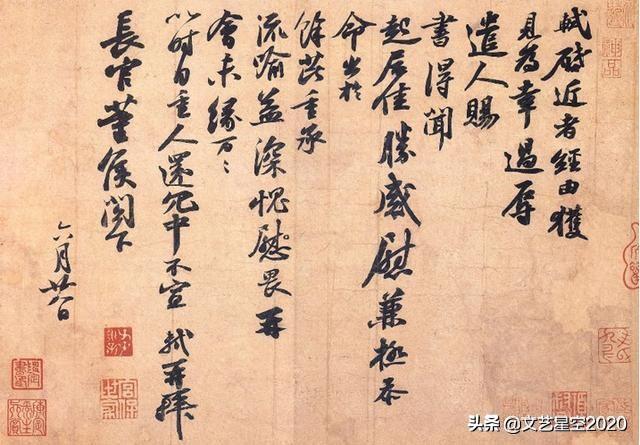 軾啓近者經由獲
見為幸過辱
遣人賜
書得聞
起居佳勝感慰兼極忝
命出於
餘芘重承
流喻益深愧畏再
會未緣万々
以时自重人還冗中不宣 軾再拜
長官董侯閣下
六月廿八日
头条 @文艺星空2020